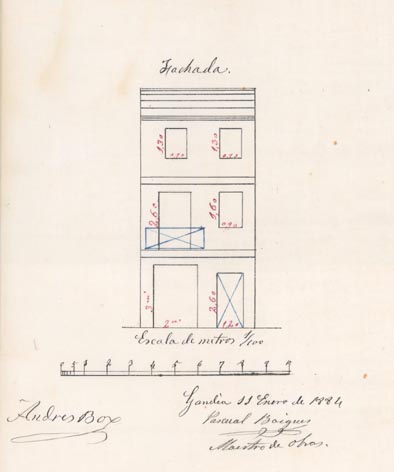 Fachada.
1,30
1,30
0,90
0,90
2,60
1,60
0,90
3 m
2,60
2 m
1,20
Escala de metros 1/100
1 2 3 4 5 6 7 8 9
Gandia 11 Enero de 1884
Andres Box
Pascual Boigues
Maestro de obras.